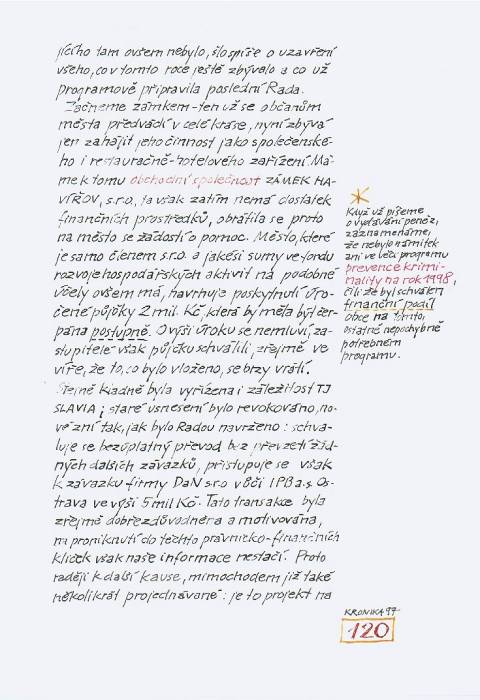 jícího tam ovšem nebylo, šlo spíše o uzavření
všeho, co v tomto roce ještě zbývalo a co už
programově připravila poslední Rada.
Začneme zámkem - ten už se občanům
města předvádí v celé kráse, nyní zbývá
jen zahájit jeho činnost jako společenské-
ho i restauračně-hotelového zařízení. Má-
me k tomu obchodní společnost ZÁMEK HA-
VÍŘOV, s.r.o., ta však zatím nemá dostatek
finančních prostředků, obrátila se proto
na město se žádostí o pomoc. Město, které
je samo členem s.r.o. a jakési sumy ve fondu
rozvoje hospodářských aktivit na podobné
účely ovšem má, navrhuje poskytnutí úro-
čené půjčky 2 mil. Kč, která by měla být čer-
pána postupně. O výši úroku se nemluví, za-
stupitelé však půjčku schválili, zřejmě ve
víře, že to, co bylo vloženo, se brzy vrátí.
Stejně kladně byla vyřízena i záležitost TJ
SLAVIA; staré usnesení bylo revokováno, no-
vé zní tak, jak bylo Radou navrženo: schva-
luje se bezúplatný převod bez převzetí žád-
ných dalších závazků, přistupuje se však
k závazku firmy DaN s.r.o. vůči IPB a.s. Os-
trava ve výši 5 mil Kč. Tato transakce byla
zřejmě dobře zdůvodněna a motivována,
na proniknutí do těchto právnicko-finančních
kliček však naše informace nestačí. Proto
raději k další kause, mimochodem již také
několikrát projednávané: je to projekt na
Když už píšeme
o vydávání peněz,
zaznamenáme,
že nebylo námitek
ani ve věci programu
prevence krimi-
nality na rok 1998,
čili že byl schválen
finanční podíl
obce na tomto,
ostatně nepochybně
potřebném
programu.
KRONIKA 97
120